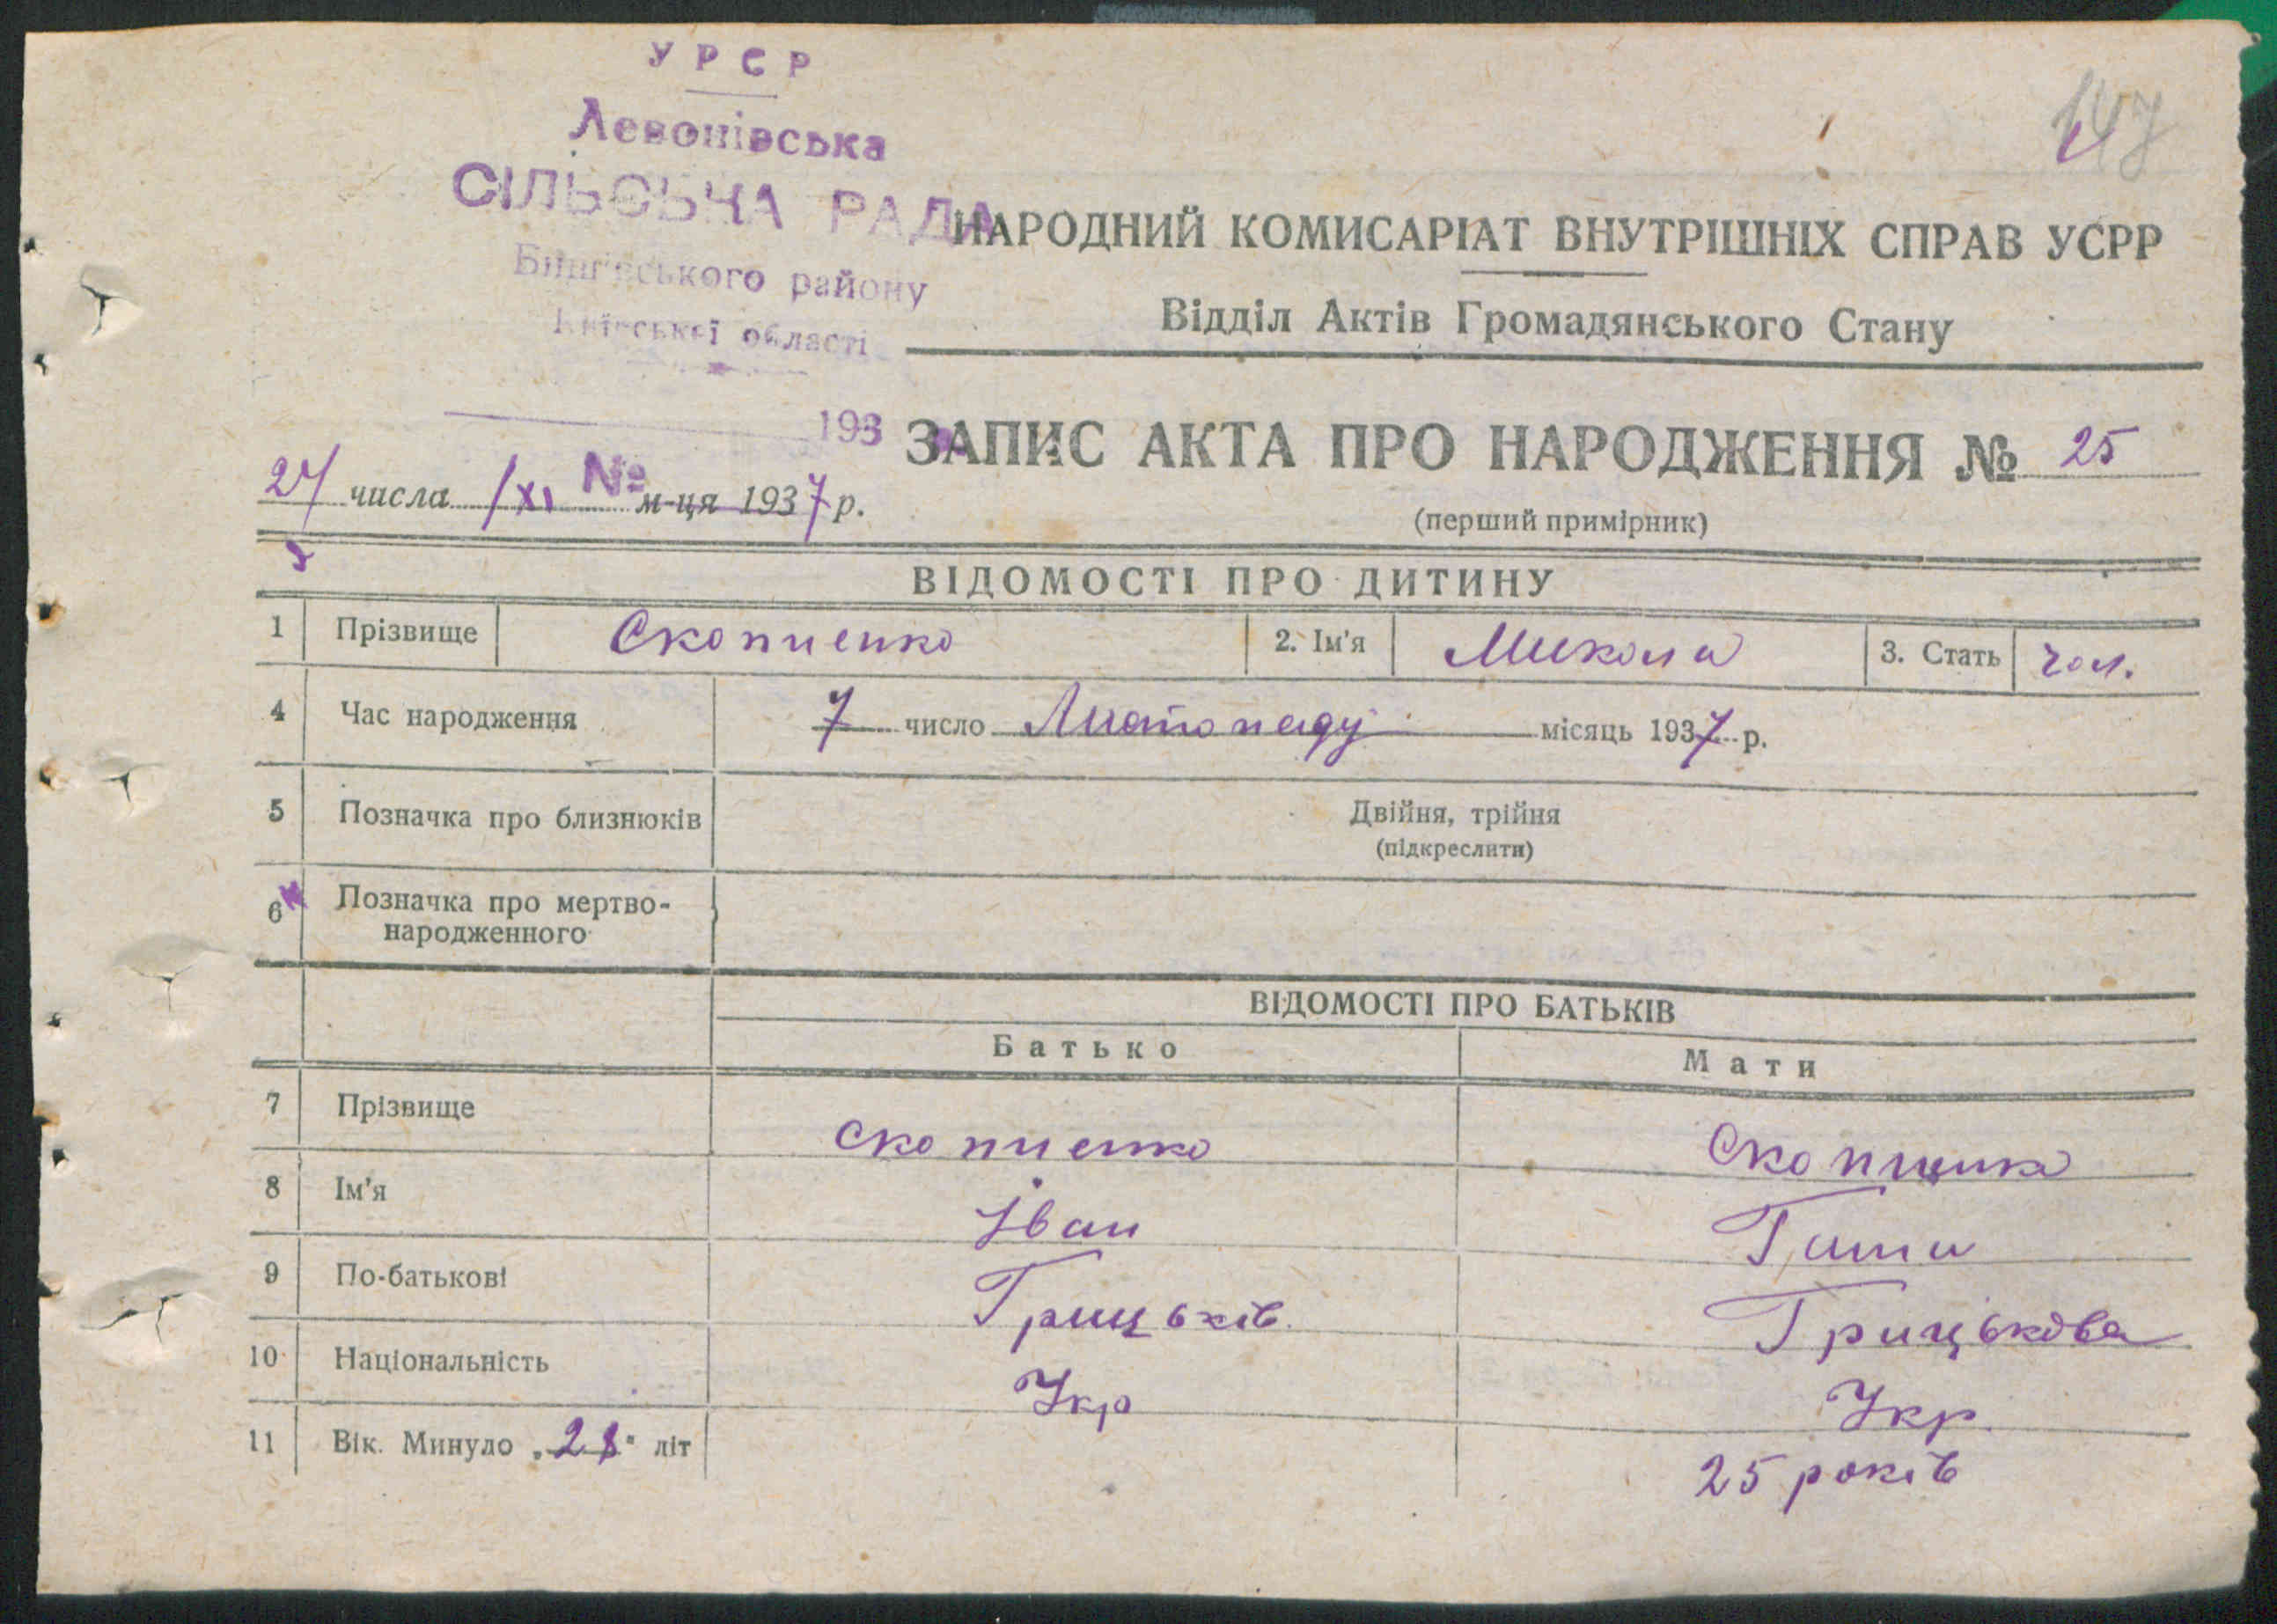 УРСР
Левонівська
СІЛЬСЬКА РАДА
району
Київської області
147
НАРОДНИЙ КОМИСАРІАТ ВНУТРІШНІХ СПРАВ УСРР
Відділ Актів Громадянського Стану
193
ЗАПИС АКТА ПРО НАРОДЖЕННЯ № 25
27 числа XI № м-ця 1937 р.
(перший примірник)
ВІДОМОСТІ ПРО ДИТИНУ
1 Прізвище Скопиенко 2. Ім'я Микола 3. Стать чол.
4 Час народження 7 число Листопаду місяць 1937 р.
5 Позначка про близнюків Двійня, трійня
(підкреслити)
6 Позначка про мертво-
народженного
ВІДОМОСТІ ПРО БАТЬКІВ
Батько Мати
7 Прізвище Скопиенко
8 Ім'я Іван
9 По-батькові Грицьків Грицькова
10 Національність Укр Укр
11 Вік. Минуло „28" літ 25 років